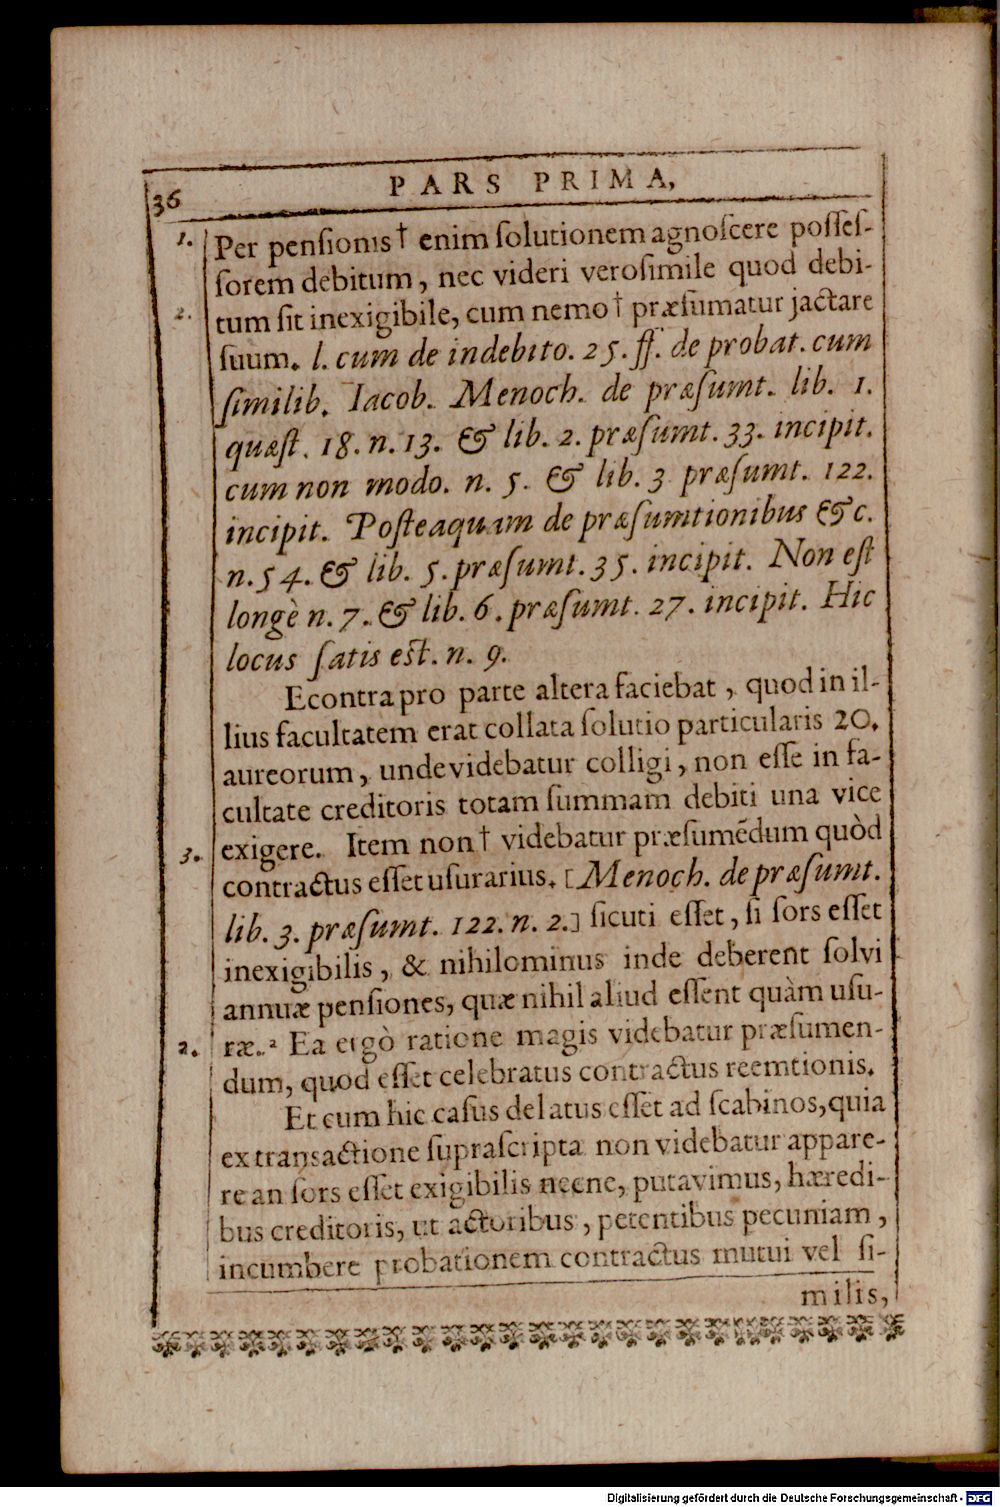 36
PARS PRIMA,
1. Per pensionis† enim solutionem agnoscere posses-
sorem debitum, nec videri verosimile quod debi-
2. tum sit inexigibile, cum nemo† præsumatur jactare
suum. l. cum de indebito. 25. ff. de probat. cum
similib. Iacob. Menoch. de præsumt. lib. 1.
quæst. 18. n. 13. & lib. 2. præsumt. 33. incipit.
cum non modo. n. 5. & lib. 3 præsumt. 122.
incipit. Posteaquam de præsumtionibus &c.
n. 54. & lib. 5. præsumt. 35. incipit. Non est
longè n. 7. & lib. 6. præsumt. 27. incipit. Hic
locus satis est. n. 9.
Econtra pro parte altera faciebat, quod in il-
lius facultatem erat collata solutio particularis 20.
aureorum, unde videbatur colligi, non esse in fa-
cultate creditoris totam summam debiti una vice
3. exigere. Item non† videbatur præsumēdum quòd
contractus esset usurarius. [Menoch. de præsumt.
lib. 3. præsumt. 122. n. 2.] sicuti esset, si sors esset
inexigibilis, & nihilominus inde deberent solvi
annuæ pensiones, quæ nihil aliud essent quàm usu-
2. ræ.² Ea ergò ratione magis videbatur præsumen-
dum, quod esset celebratus contractus reemtionis.
Et cum hic casus delatus esset ad scabinos, quia
ex transactione suprascripta non videbatur appare-
re an sors esset exigibilis necne, putavimus, hæredi-
bus creditoris, ut actoribus, petentibus pecuniam,
incumbere probationem contractus mutui vel si-
milis,
Digitalisierung gefördert durch die Deutsche Forschungsgemeinschaft - DFG